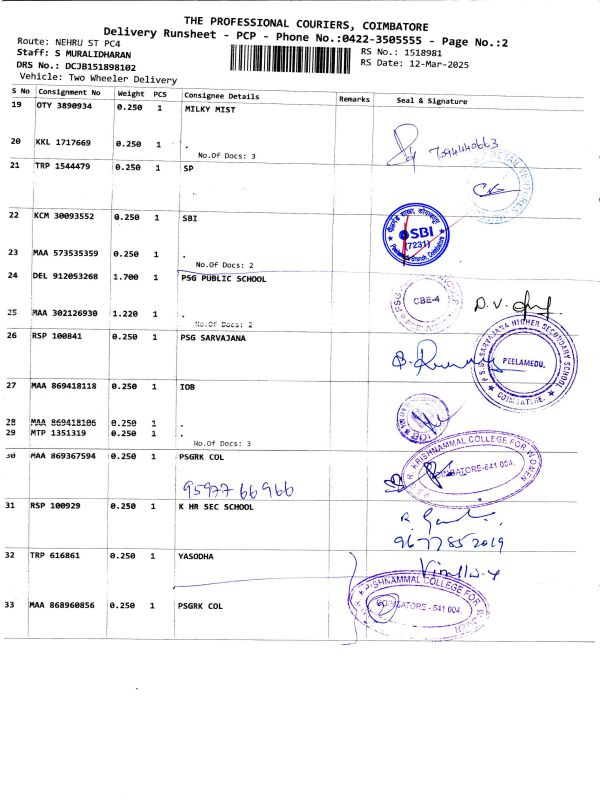 THE PROFESSIONAL COURIERS, COIMBATORE
Delivery Runsheet - PCP - Phone No.:0422-3505555 - Page No.:2
Route: NEHRU ST PC4
RS No.: 1518981
Staff: S MURALIDHARAN
RS Date: 12-Mar-2025
DRS No.: DCJB151898102
Vehicle: Two Wheeler Delivery
S No Consignment No Weight PCS Consignee Details Remarks Seal & Signature
19 OTY 3890934 0.250 1 MILKY MIST
20 KKL 1717669 0.250 1 .
7094440663
No.Of Docs: 3
21 TRP 1544479 0.250 1 SP
22 KCM 30093552 0.250 1 SBI
SBI
(7231)
23 MAA 573535359 0.250 1 .
No.Of Docs: 2
24 DEL 912053268 1.700 1 PSG PUBLIC SCHOOL
CBE-4
25 MAA 302126930 1.220 1 .
No.Of Docs: 2
26 RSP 100841 0.250 1 PSG SARVAJANA
P.S.G. SARVAJANA HIGHER SECONDARY SCHOOL
PEELAMEDU,
COIMBATORE.
27 MAA 869418118 0.250 1 IOB
28 MAA 869418106 0.250 1 .
29 MTP 1351319 0.250 1 .
No.Of Docs: 3
30 MAA 869367594 0.250 1 PSGRK COL
R. KRISHNAMMAL COLLEGE FOR WOMEN
COIMBATORE-641 004.
95977 66966
31 RSP 100929 0.250 1 K HR SEC SCHOOL
9677852019
32 TRP 616861 0.250 1 YASODHA
33 MAA 868960856 0.250 1 PSGRK COL
KRISHNAMMAL COLLEGE FOR WOMEN
COIMBATORE - 641 004.